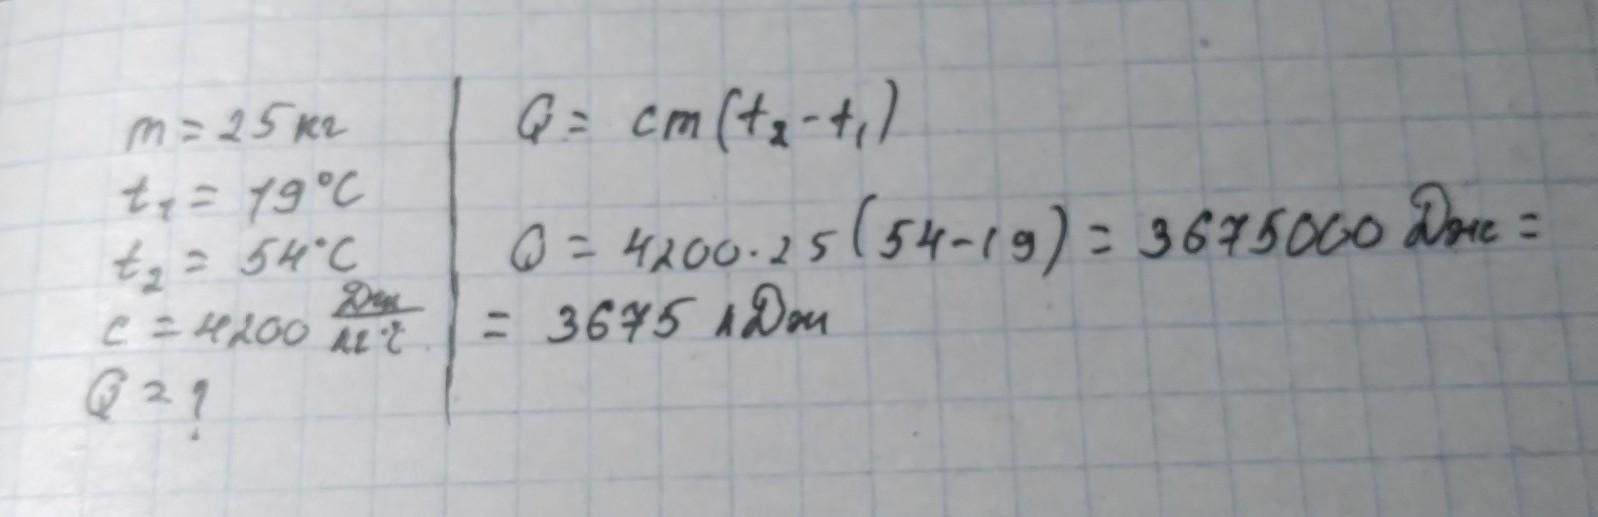 m = 25 кг
t₁ = 19°C
t₂ = 54°C
c = 4200 Дж/кг°C
Q = ?
Q = cm(t₂-t₁)
Q = 4200·25(54-19) = 3675000 Дж =
= 3675 кДж